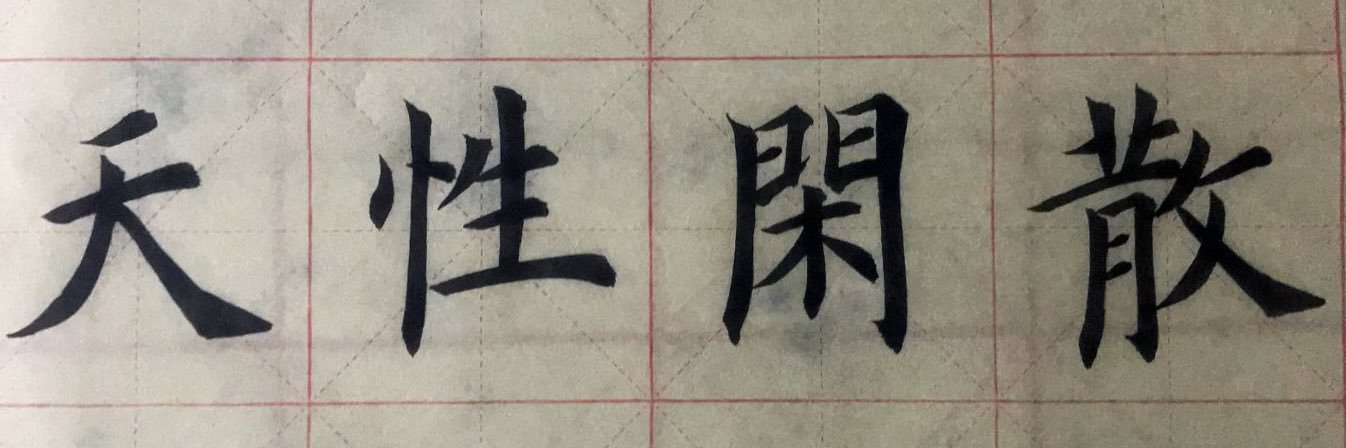 天性閑散